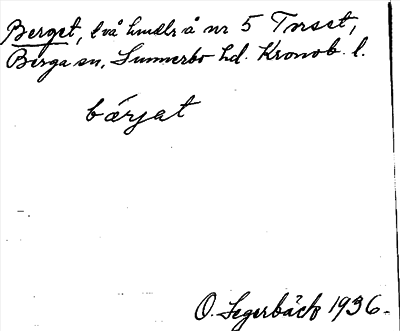 Berget, två hmdlr å nr 5 Torset,
Berga sn, Sunnerbo hd. Kronob. l.
bärjat
O. Segerbäck 1936.